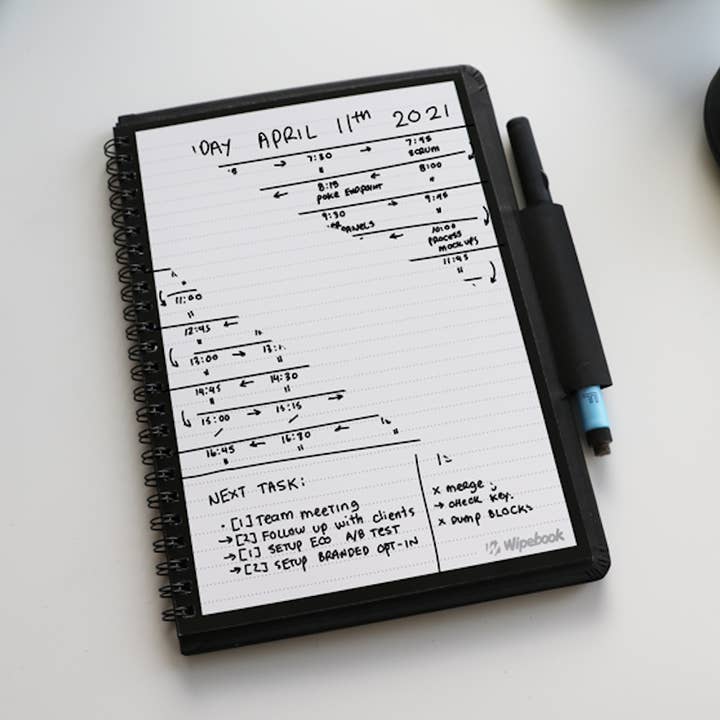 DAY APRIL 11th 2021
→ 7:30 → 7:45
" SCRUM
← 8:15 ← 8:00
POKE ENDPOINT "
9:30 → 9:45
PANELS "
← 10:00
PROCESS
MOCKUPS
11:45
"
11:00
"
12:45 ←
"
13:00 →
" "
14:45 ← 14:30
" "
15:00 → 15:15 →
/ /
16:45 ← 16:30 ←
" "
NEXT TASK:
· [1] Team meeting
→ [2] FOLLOW UP with clients
→ [1] SETUP ECO A/B TEST
→ [2] SETUP BRANDED OPT-IN
x merge
→ CHECK KEY.
x DUMP BLOCKS
Wipebook